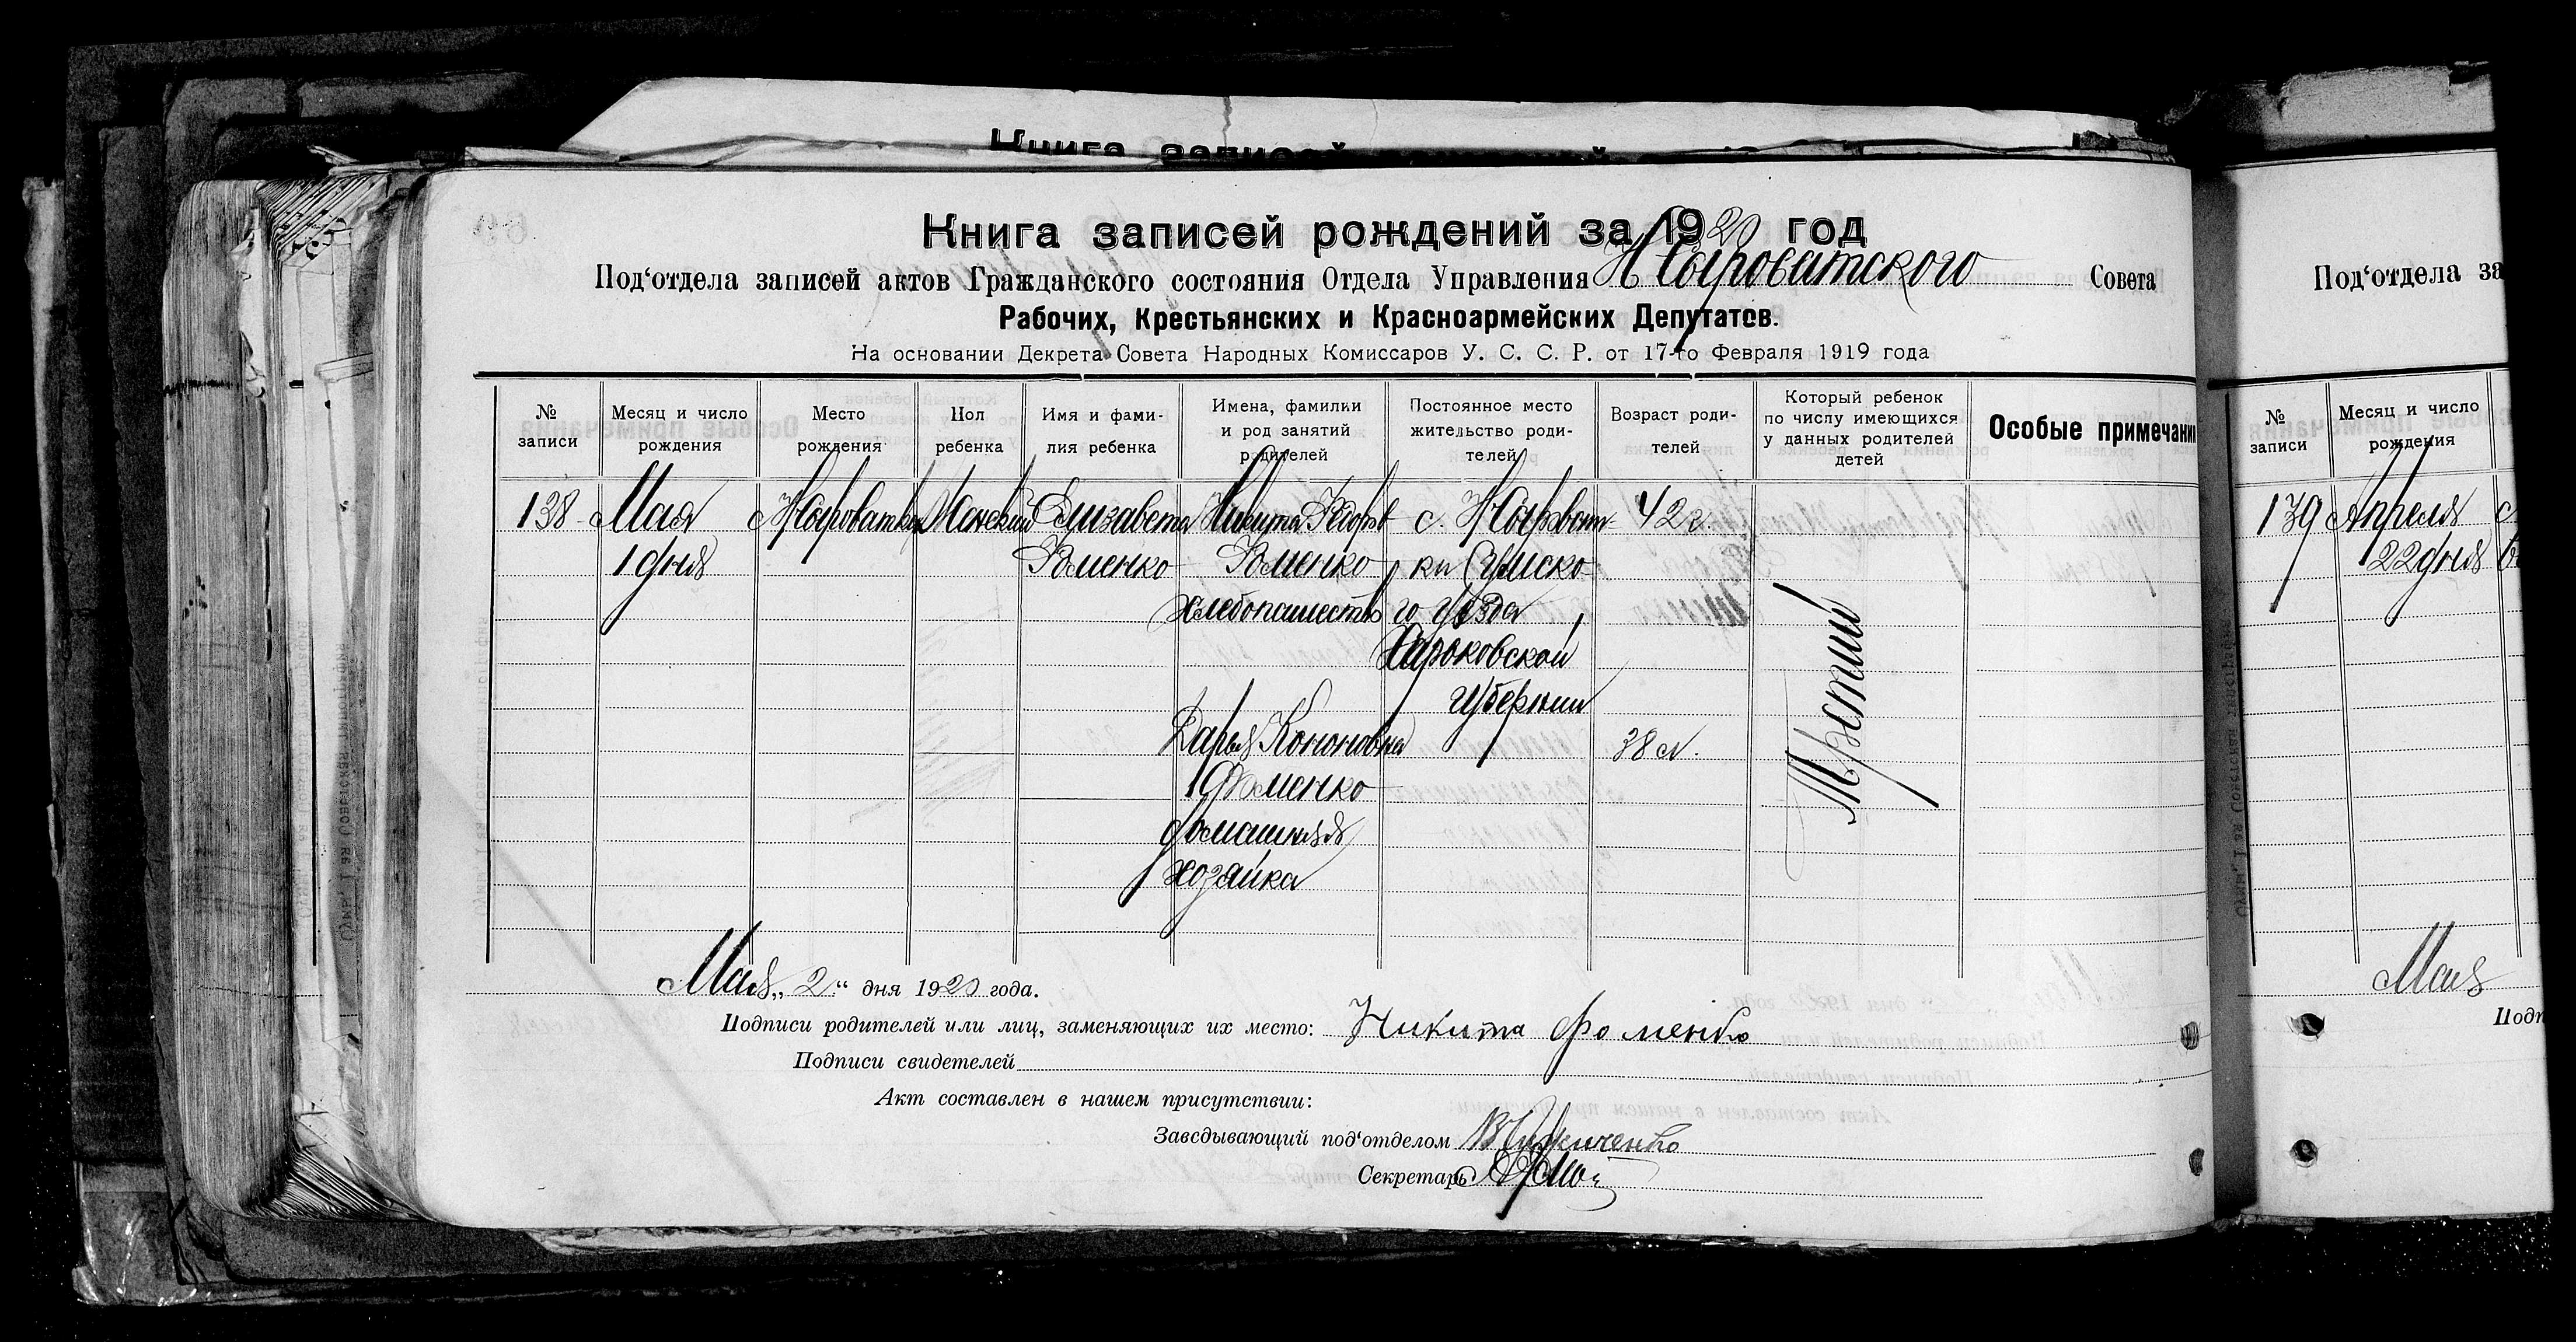 Книга записей рождений за 1920 год
Под‘отдела записей актов Гражданского состояния Отдела Управления Н Сыроватского Совета
Рабочих, Крестьянских и Красноармейских Депутатов.
На основании Декрета Совета Народных Комиссаров У. С. С. Р. от 17-го Февраля 1919 года
№ записи
Месяц и число рождения
Место рождения
Пол ребенка
Имя и фами-
лия ребенка
Имена, фамилки
и род занятий
родителей
Постоянное место
жительство роди-
телей
Возраст роди-
телей
Который ребенок
по числу имеющихся
у данных родителей
детей
Особые примечани
138
Мая
1 дня
Н Сыроватка
Женский
Елизавета
Фоменко
Никита
Фоменко
хлебопашество
Дарья Кононовна
Фоменко
домашняя
хозяйка
с. Н Сыроват-
ки Сумско-
го уезда
Харьковской
губернии
42 г.
38 л.
Третий
Мая „2“ дня 1920 года.
Подписи родителей или лиц, заменяющих их место: Никита Фоменко
Подписи свидетелей
Акт составлен в нашем присутствии:
Заведывающий под‘отделом
Секретарь
Под‘отдела за
№ записи
Месяц и число
рождения
139
Апреля
22 дня
Мая
Подп